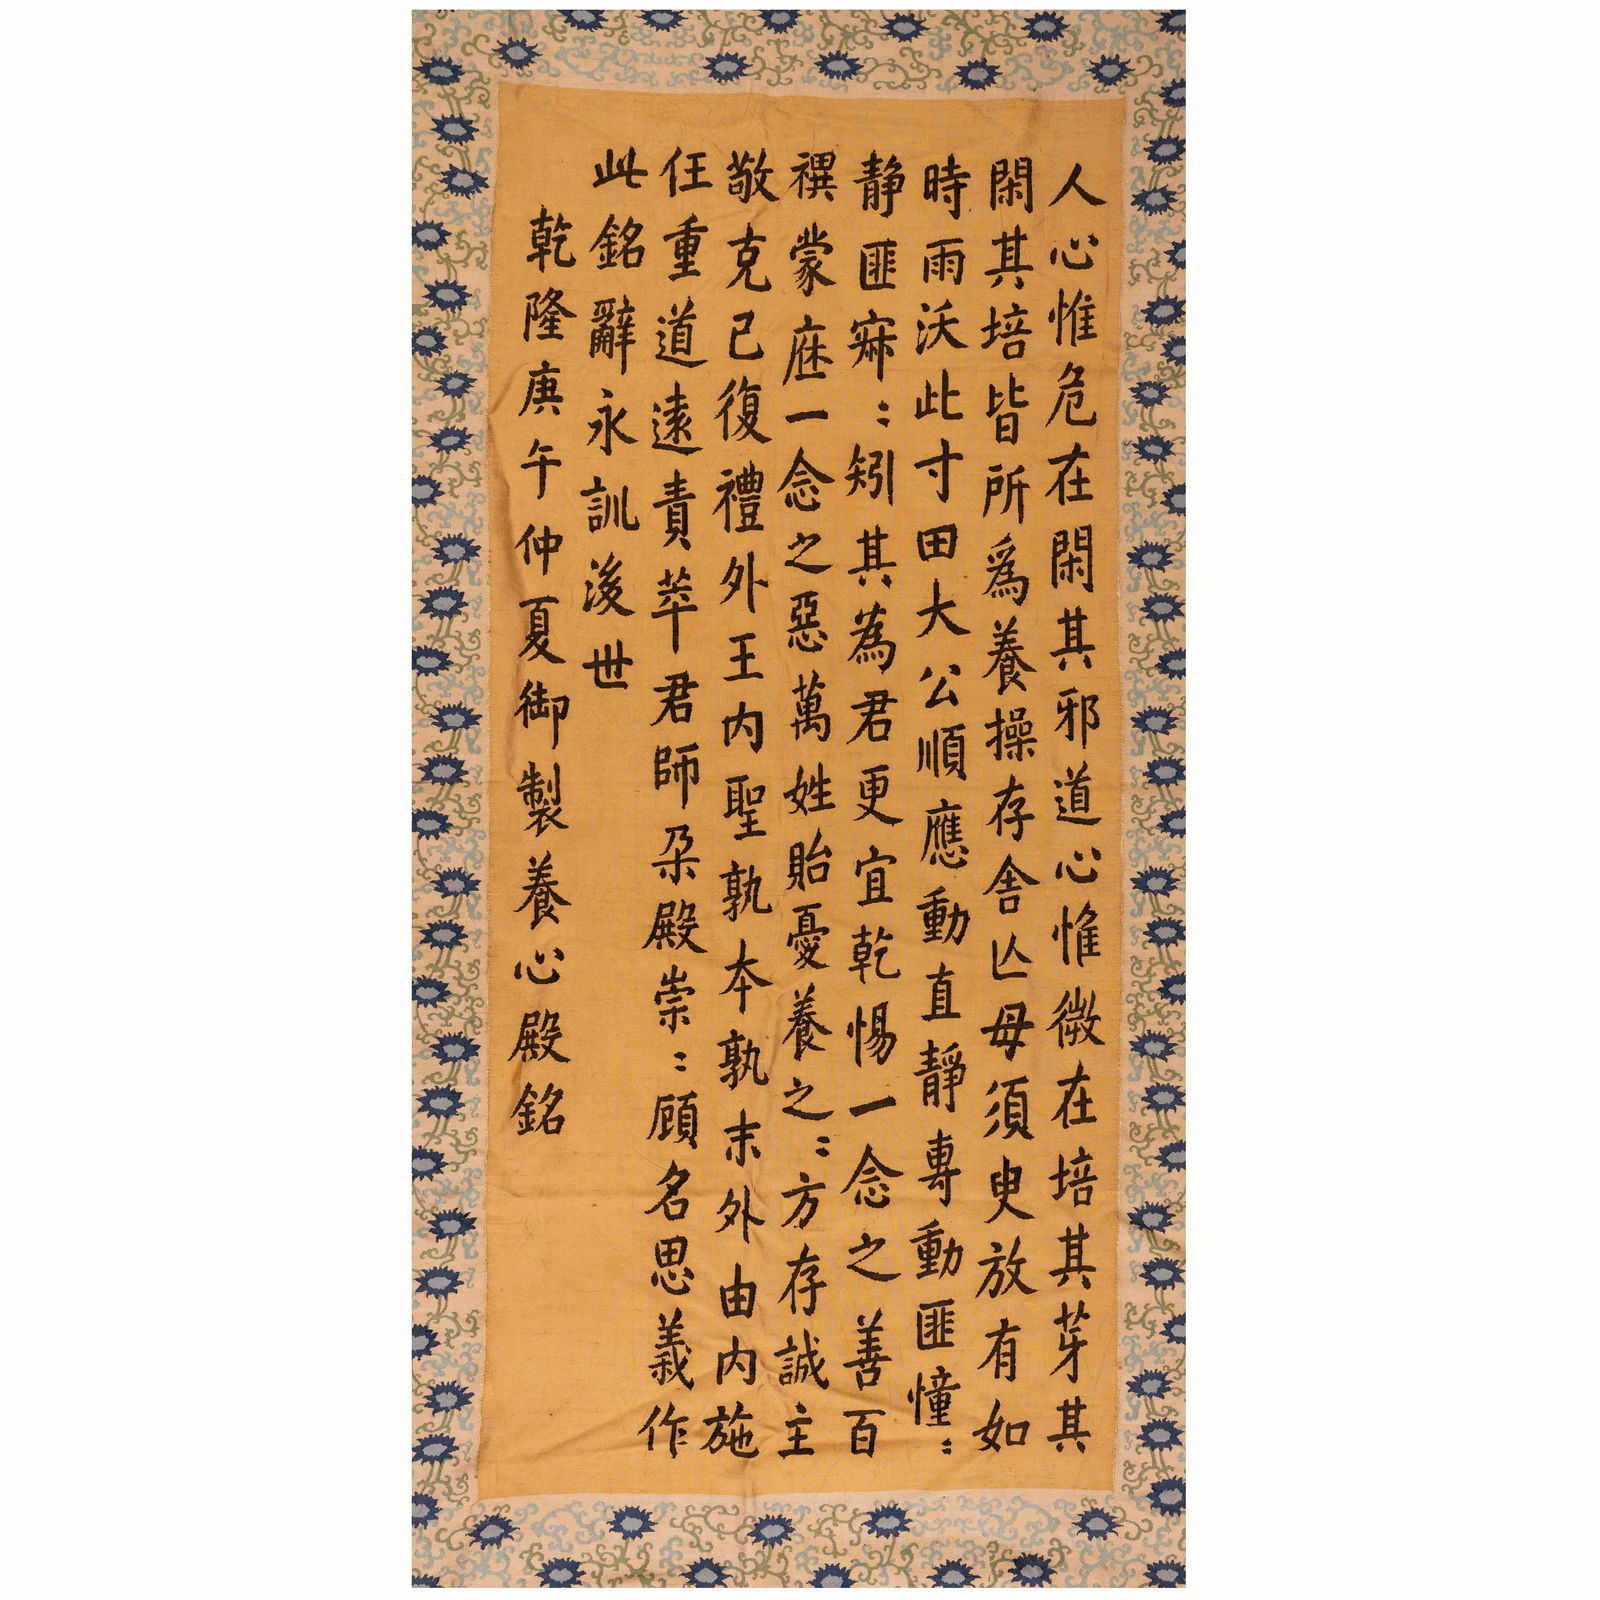 人心惟危在閑其邪道心惟微在培其芽其
閑其培皆所為養操存舍亾毋須臾放有如
時雨沃此寸田大公順應動直靜專動匪憧〻
静匪寂〻矧其為君更宜乾惕一念之善百
禩蒙庥一念之惡萬姓貽憂養之〻方存誠主
敬克己復禮外王内聖孰本孰末外由内施
任重道遠責萃君師朶殿崇〻顧名思義作
此銘辭永訓後世
乾隆庚午仲夏御製養心殿銘